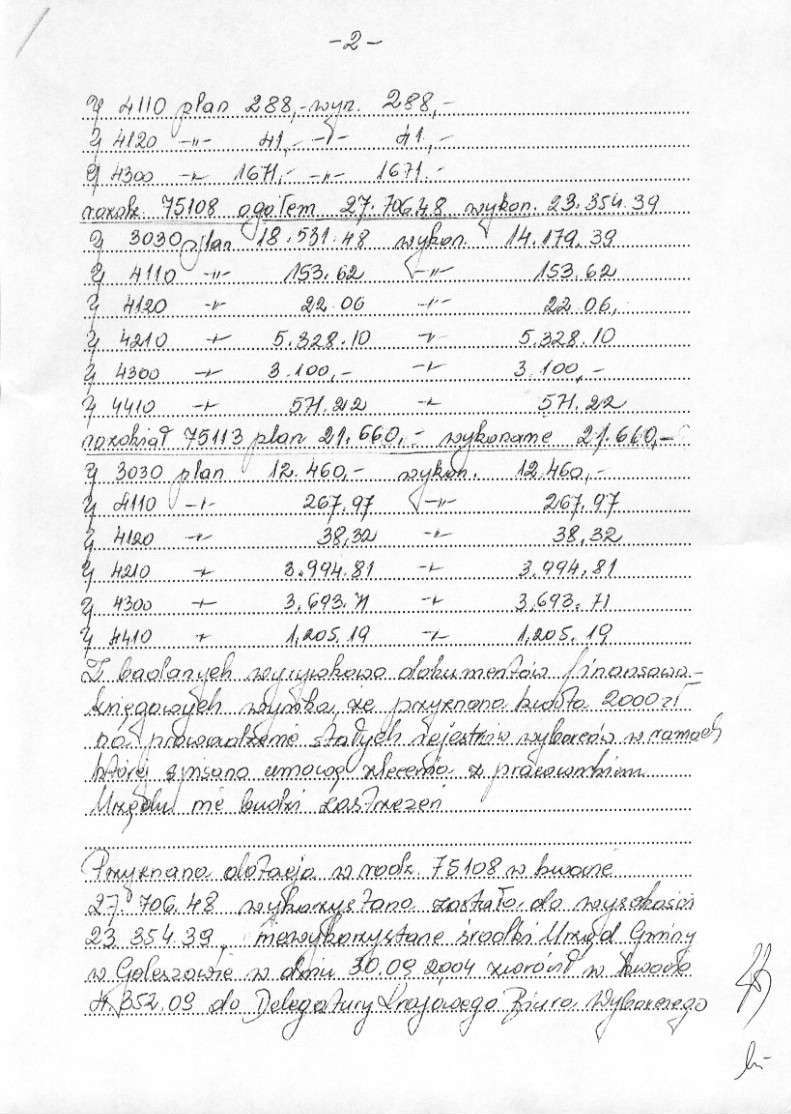 -2-
§ 4110 plan 288,- wyk. 288,-
§ 4120 -"- 41,- -"- 41,-
§ 4300 -"- 1671,- -"- 1671.-
rozdz. 75108 ogółem 27.706.48 wykon. 23.354.39
§ 3030 plan 18.531.48 wykon. 14.179.39
§ 4110 -"- 153.62 -"- 153.62
§ 4120 -"- 22.06 -"- 22.06,
§ 4210 -"- 5.328.10 -"- 5.328.10
§ 4300 -"- 3.100,- -"- 3.100,-
§ 4410 -"- 571.22 -"- 571.22
rozdział 75113 plan 21.660,- wykonanie 21.660,-
§ 3030 plan 12.460,- wykon. 12.460,-
§ 4110 -"- 267.97 -"- 267.97
§ 4120 -"- 38,32 -"- 38,32
§ 4210 -"- 3.994.81 -"- 3.994.81
§ 4300 -"- 3.693.71 -"- 3.693.71
§ 4410 -"- 1,205.19 -"- 1,205.19
Z badanych wyrywkowo dokumentów finansowo-
księgowych wynika, że przyznana kwota 2000 zł
na prowadzenie stałych rejestrów wyborców w ramach
której spisano umowę zlecenia z pracownikiem
Urzędu nie budzi zastrzeżeń
Przyznana dotacja w rodz. 75108 w kwocie
27.706.48 wykorzystana została do wysokości
23 354.39, niewykorzystane środki Urząd Gminy
w Goleszowie w dniu 30.09.2004 zwrócił w kwocie
4.352.09 do Delegatury Krajowego Biura Wyborczego